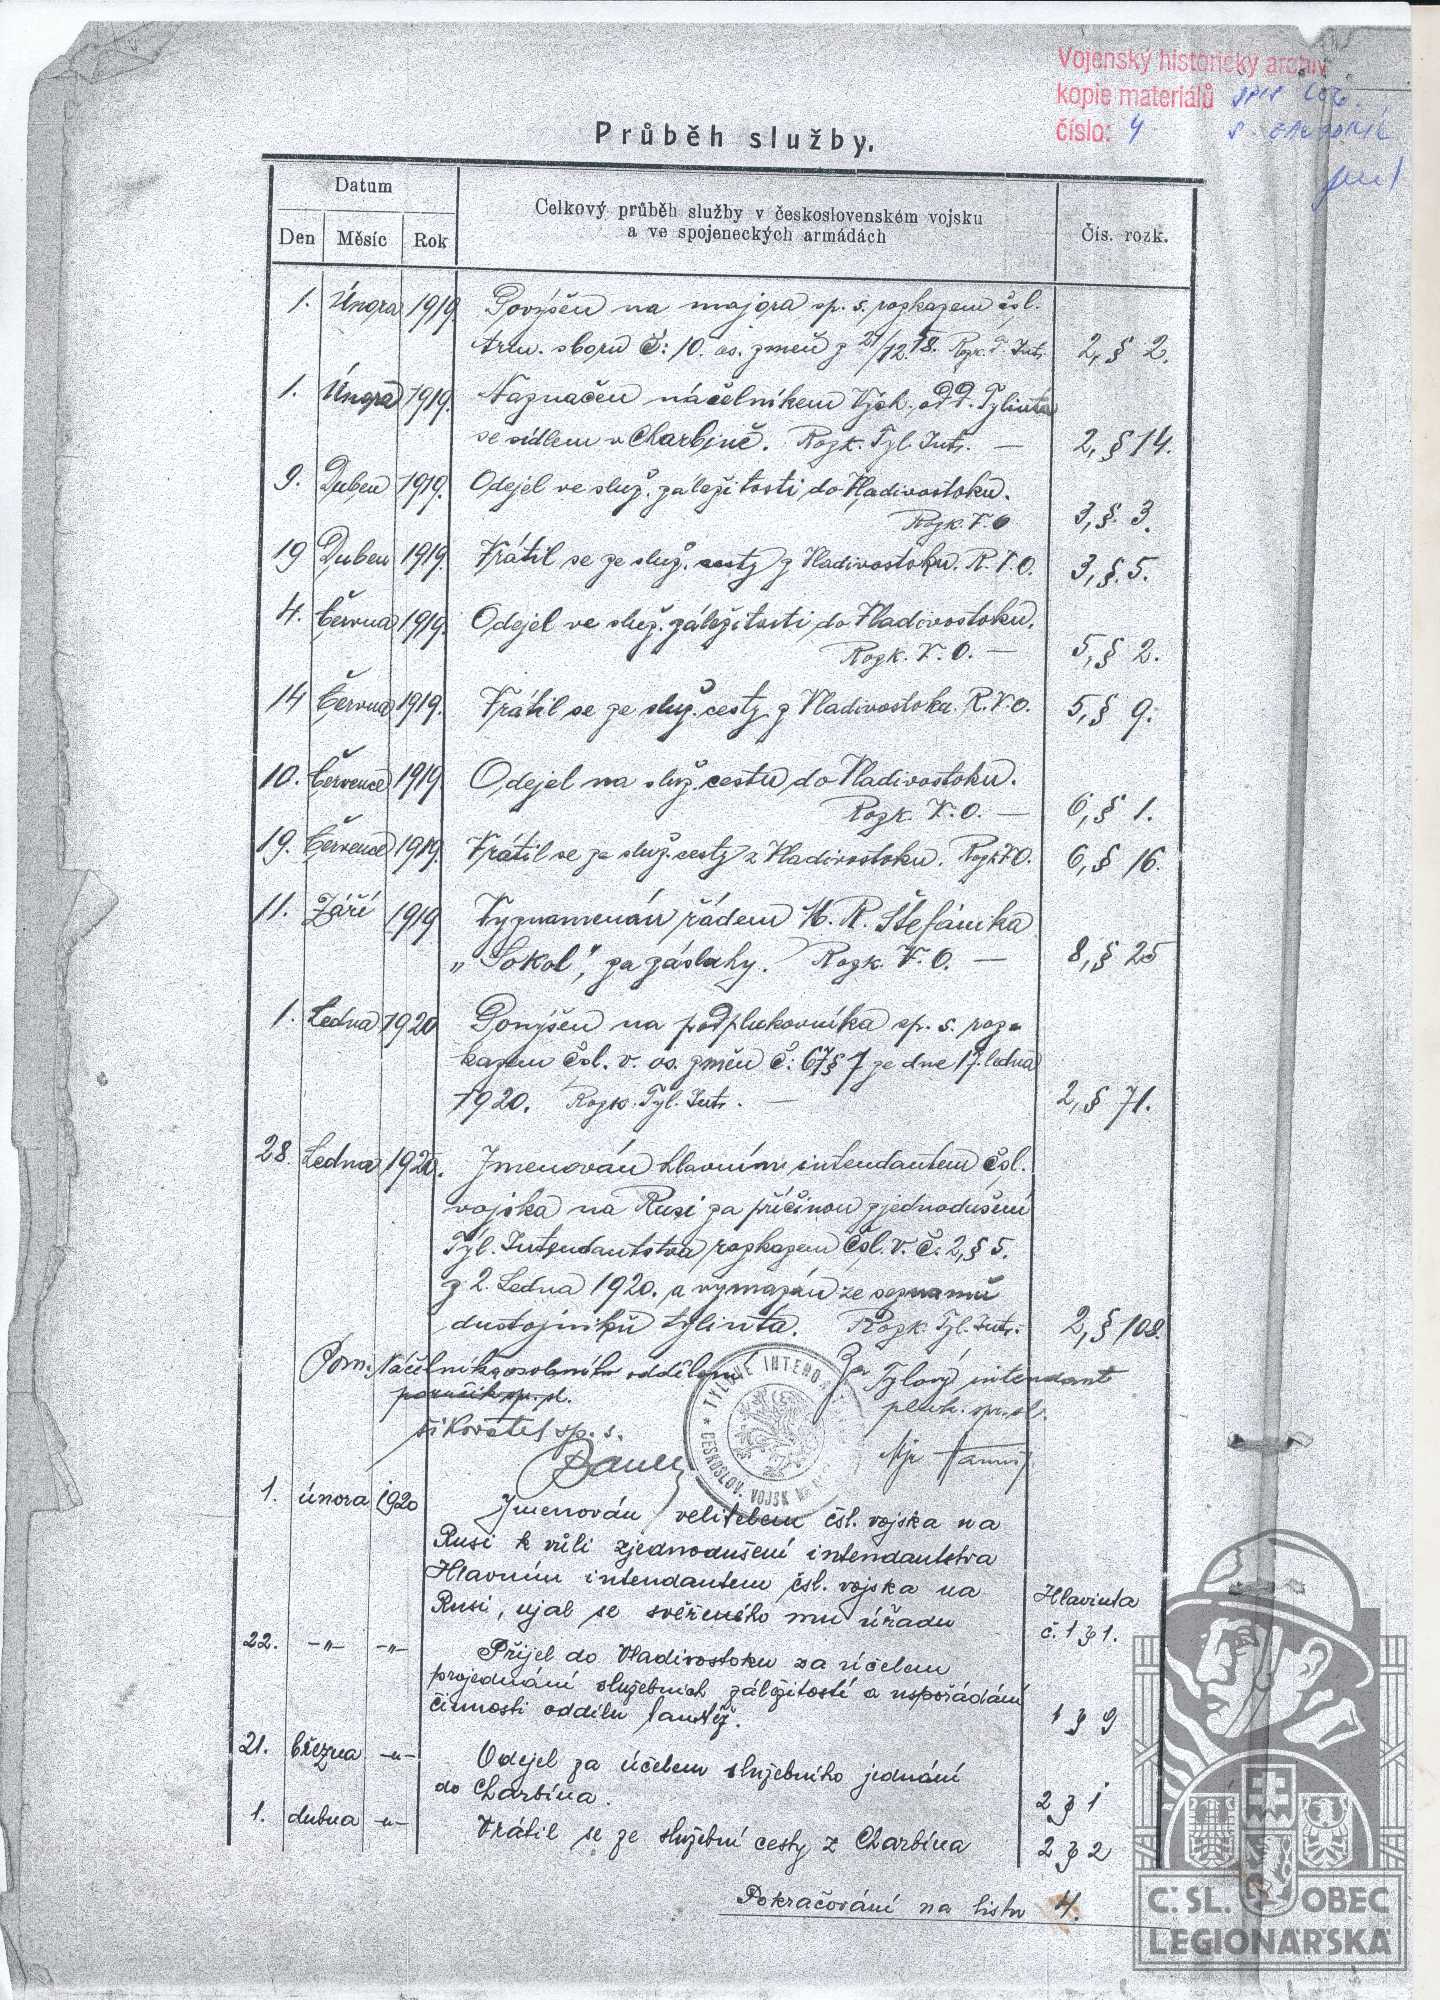 Vojenský historický archiv
kopie materiálů
číslo: 4
Průběh služby.
Datum
Den Měsíc Rok
Celkový průběh služby v československém vojsku
a ve spojeneckých armádách
Čís. rozk.
1. Února 1919. Povýšen na majora sp. s. rozkazem čsl.
Arm. sboru č: 10. os. změn z 21/12.18. Rozk. T. Int. 2, § 2.
1. Února 1919. Naznačen náčelníkem Vých. odd. Tylinta
se sídlem v Charbině. Rozk. Tyl. Int. — 2, § 14.
9. Duben 1919. Odejel ve služ. záležitosti do Vladivostoku.
Rozk. V. O 3, §. 3.
19 Duben 1919. Vrátil se ze služ. cesty z Vladivostoku. R. V. O. 3, §. 5.
4. Června 1919. Odejel ve služ. záležitosti do Vladivostoku.
Rozk. V. O. — 5, § 2.
14 Června 1919. Vrátil se ze služ. cesty z Vladivostoka. R. V. O. 5, § 9.
10. Července 1919. Odejel na služ. cestu do Vladivostoku.
Rozk. V. O. — 6, § 1.
19. Července 1919. Vrátil se ze služ. cesty z Vladivostoku. Rozk V.O. 6, § 16.
11. Září 1919 Vyznamenán řádem M. R. Štefánika
„Sokol", za zásluhy. Rozk. V. O. — 8, § 25
1. Ledna 1920 Povýšen na podplukovníka sp. s. roz-
kazem Čsl. v. os. změn č: 67 § 7 ze dne 17. ledna
1920. Rozk. Tyl. Int. — 2, § 71.
28. Ledna 1920. Jmenován hlavním intendantem čsl.
vojska na Rusi za příčinou zjednodušení
Tyl. Intendantstva rozkazem Čsl. v. č. 2, § 5.
z 2. Ledna 1920. a vymazán ze seznamu
dustojníků tylinta. Rozk. Tyl. Int. 2, § 108.
Pom. Náčelníka osobního oddělení
poručík sp. sl.
šikovatel sp. s.
Za Tylový intendant
pluk. spr. sl.
TYLOVÉ INTENDA
ČESKOSLOV. VOJSK NA
1. února 1920 Jmenován velitelem čsl. vojska na
Rusi k vůli zjednodušení intendantstva
Hlavním intendantem čsl. vojska na
Rusi, ujal se svěřeného mu úřadu Hlavinta
č. 1 § 1.
22. —„— —„— Přijel do Vladivostoku za účelem
projednání služebních záležitostí a uspořádání
činnosti oddílu tamtéž. 1 § 9
21. března —„— Odejel za účelem služebního jednání
do Charbína. 2 § 1
1. dubna —„— Vrátil se ze služební cesty z Charbína 2 § 2
Pokračování na listu 4.
Č. SL. OBEC
LEGIONÁŘSKÁ